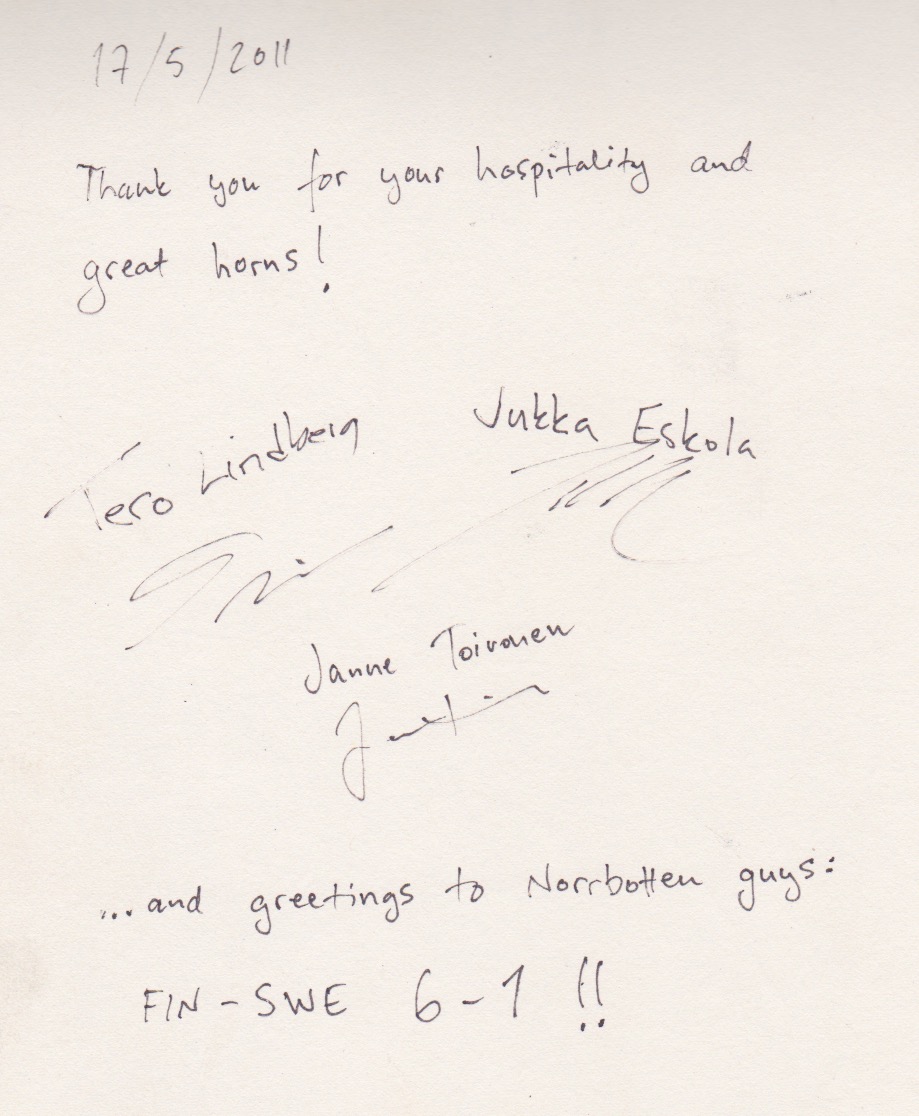 17/5/2011
Thank you for your hospitality and
great horns!
Tero Lindberg
Jukka Eskola
Janne Toivonen
...and greetings to Norrbotten guys:
FIN - SWE 6-1 !!